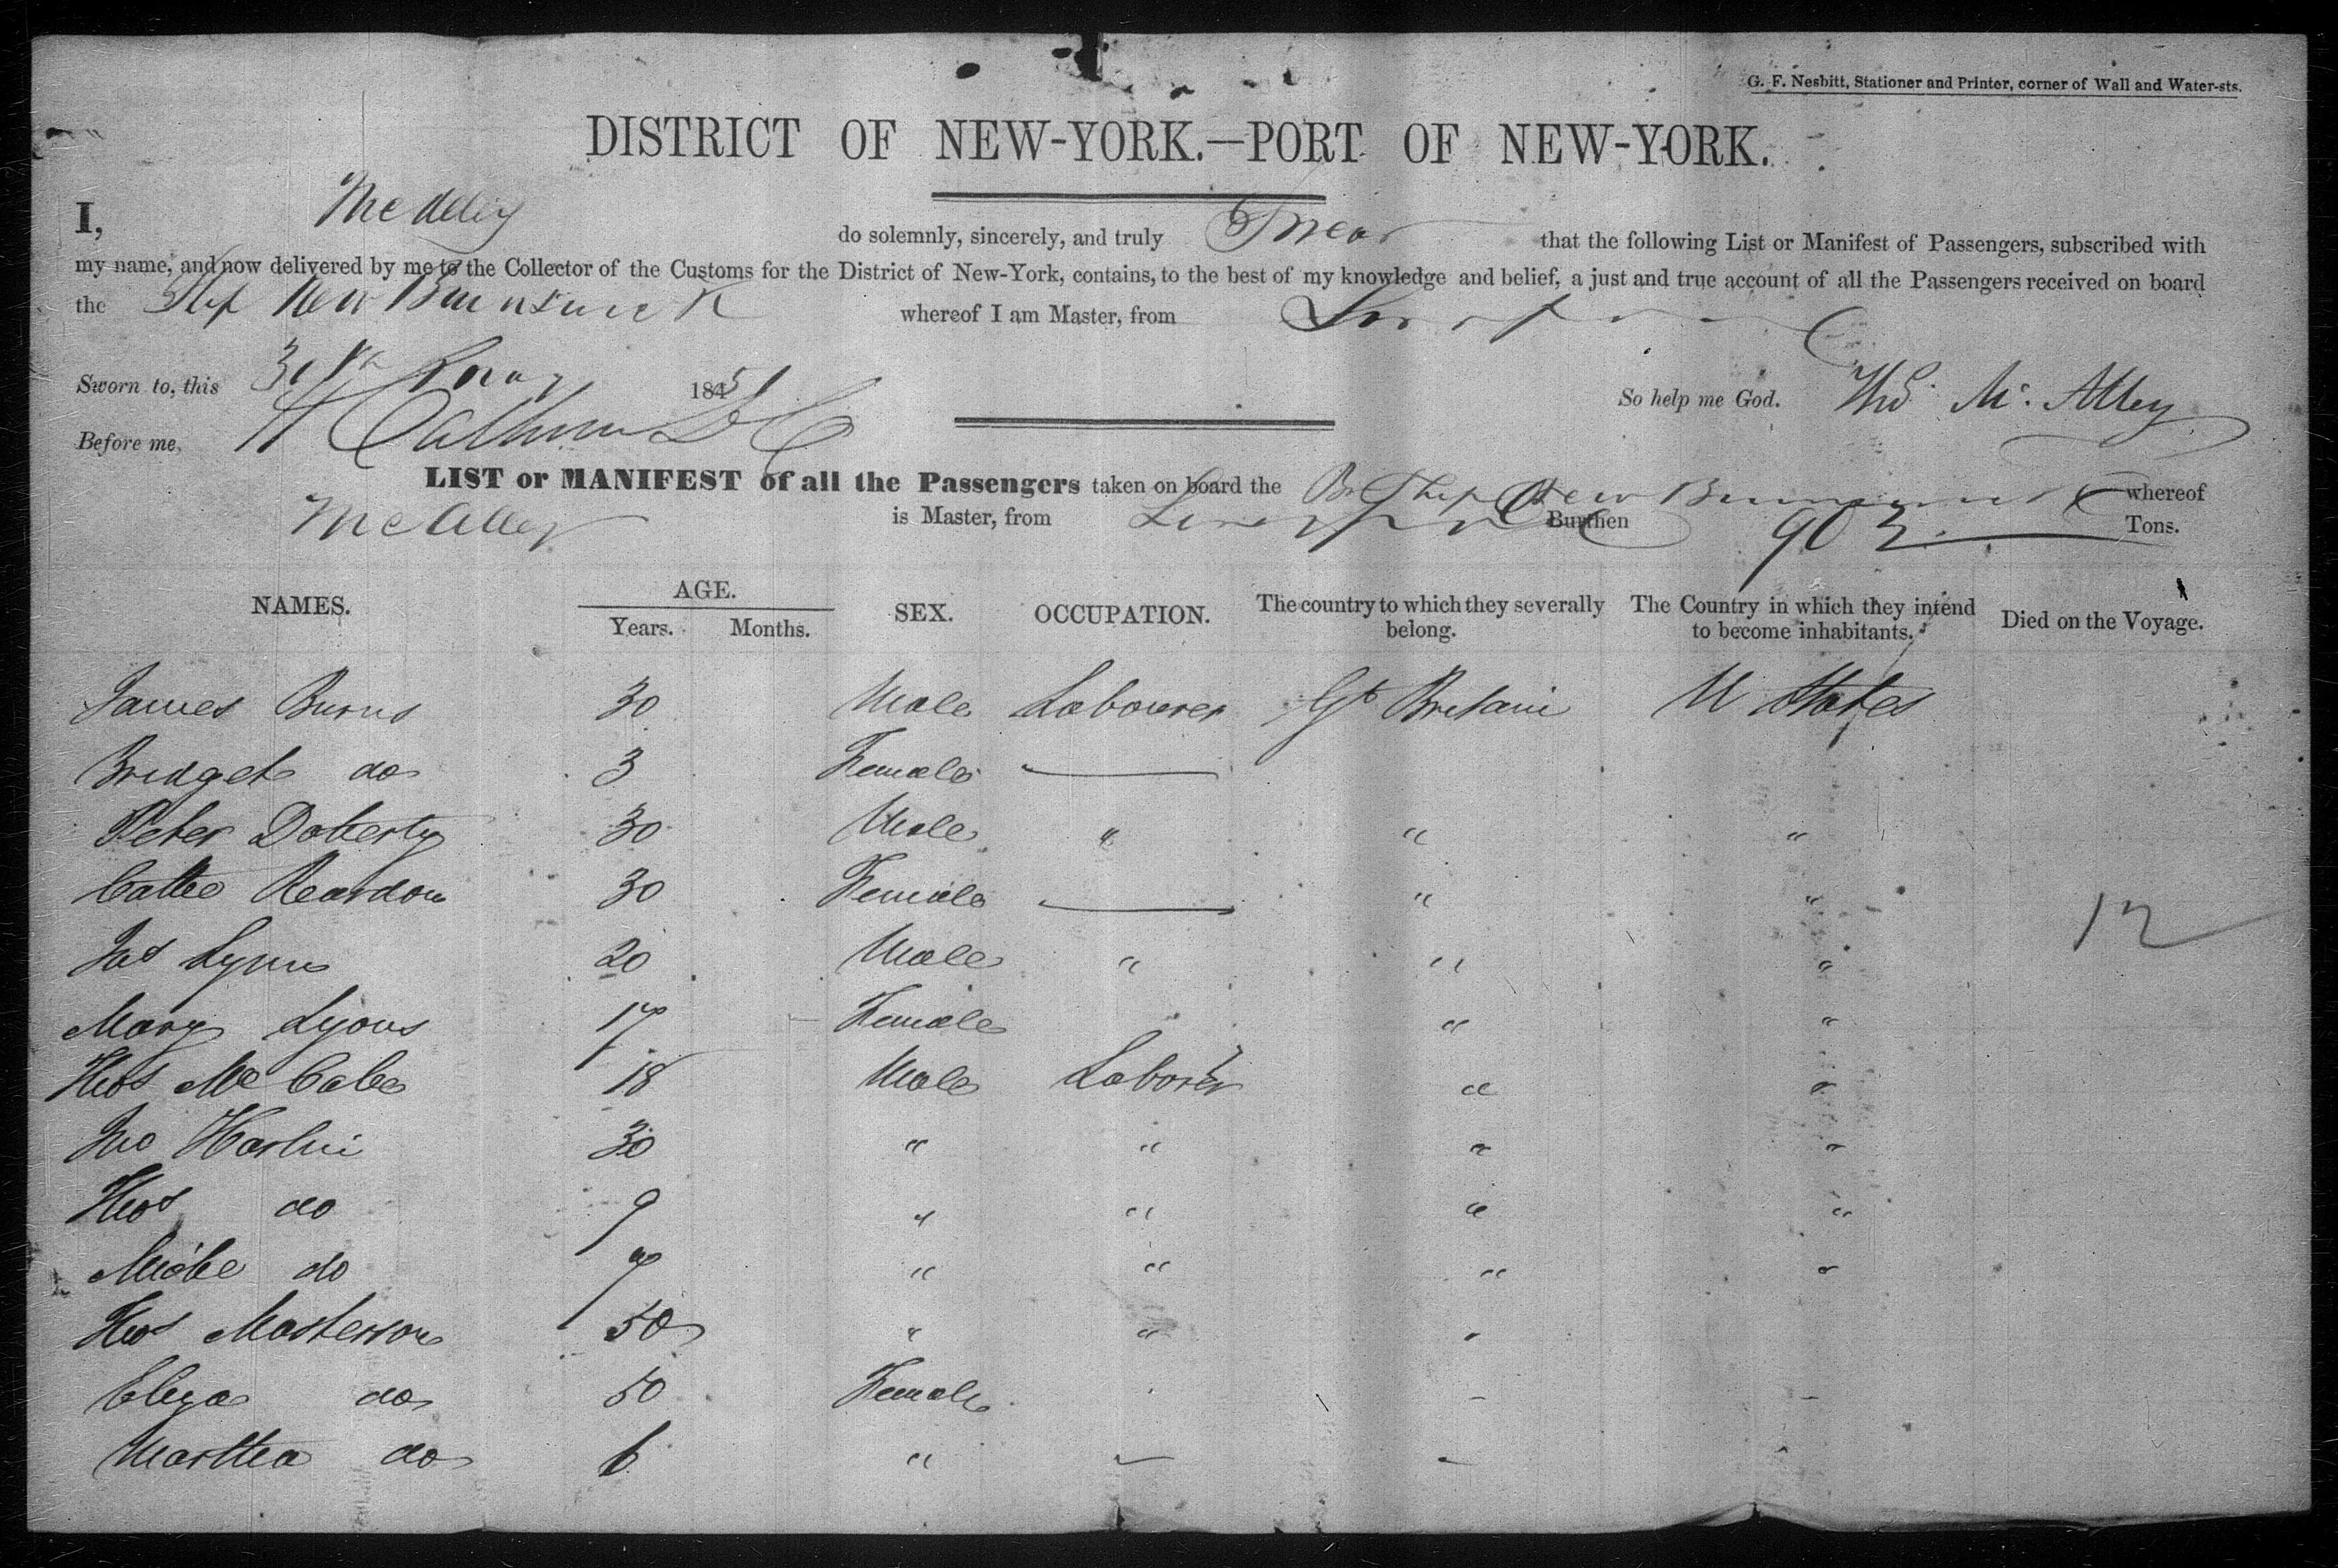 G. F. Nesbitt, Stationer and Printer, corner of Wall and Water-sts.
DISTRICT OF NEW-YORK.—PORT OF NEW-YORK.
I, McAlley do solemnly, sincerely, and truly Swear that the following List or Manifest of Passengers, subscribed with
my name, and now delivered by me to the Collector of the Customs for the District of New-York, contains, to the best of my knowledge and belief, a just and true account of all the Passengers received on board
the Ship New Brunswick whereof I am Master, from Liverpool
Sworn to, this 30th 1845 So help me God. Thos McAlley
Before me, Calhoun D C
LIST or MANIFEST of all the Passengers taken on board the Br Ship New Brunswick whereof
McAlley is Master, from Liverpool Burthen 902 Tons.
NAMES. AGE. SEX. OCCUPATION. The country to which they severally belong. The Country in which they intend to become inhabitants. Died on the Voyage.
Years. Months.
James Burns 30 Male Labourer Gt Britain U States
Bridget do 3 Female —
Peter Doherty 30 Male " " "
Cathe Reardon 30 Female — " " 12
Jas Lynn 20 Male " " "
Mary Lyons 17 Female " "
Thos McCabe 18 Male Laborer " "
Jno 30 " " " "
Thos do 9 " " " "
do 7 " " " "
Thos Masterson 50 " " "
Eliza do 50 Female - -
Martha do 6 " - -